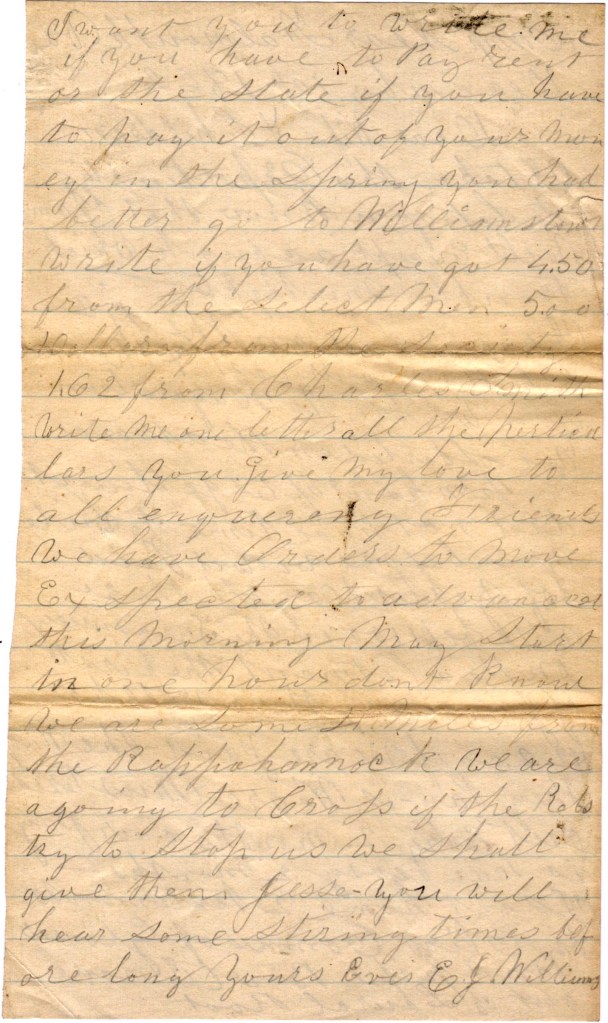 I want you to write me
if you have to Pay rent
or the State if you have
to pay it out of your Mon
ey in the Spring you had
better go to Williamstown
Write if you have got 4.50
from the Select Men 5.00
Dollars from the Society
1.62 from Charles Smith
Write me one letter all the Perticu
lars you Give My love to
all enquereng Friends
We have Orders to Move
Exspected to advance
this Morning May Start
in one hour dont Know
We are some Miles from
the Rappahannock We are
agoing to Cross if the Rebs
try to Stop us we shall
give them Jesse you will
hear some stiring times bef
ore long Yours Ever E J Williams